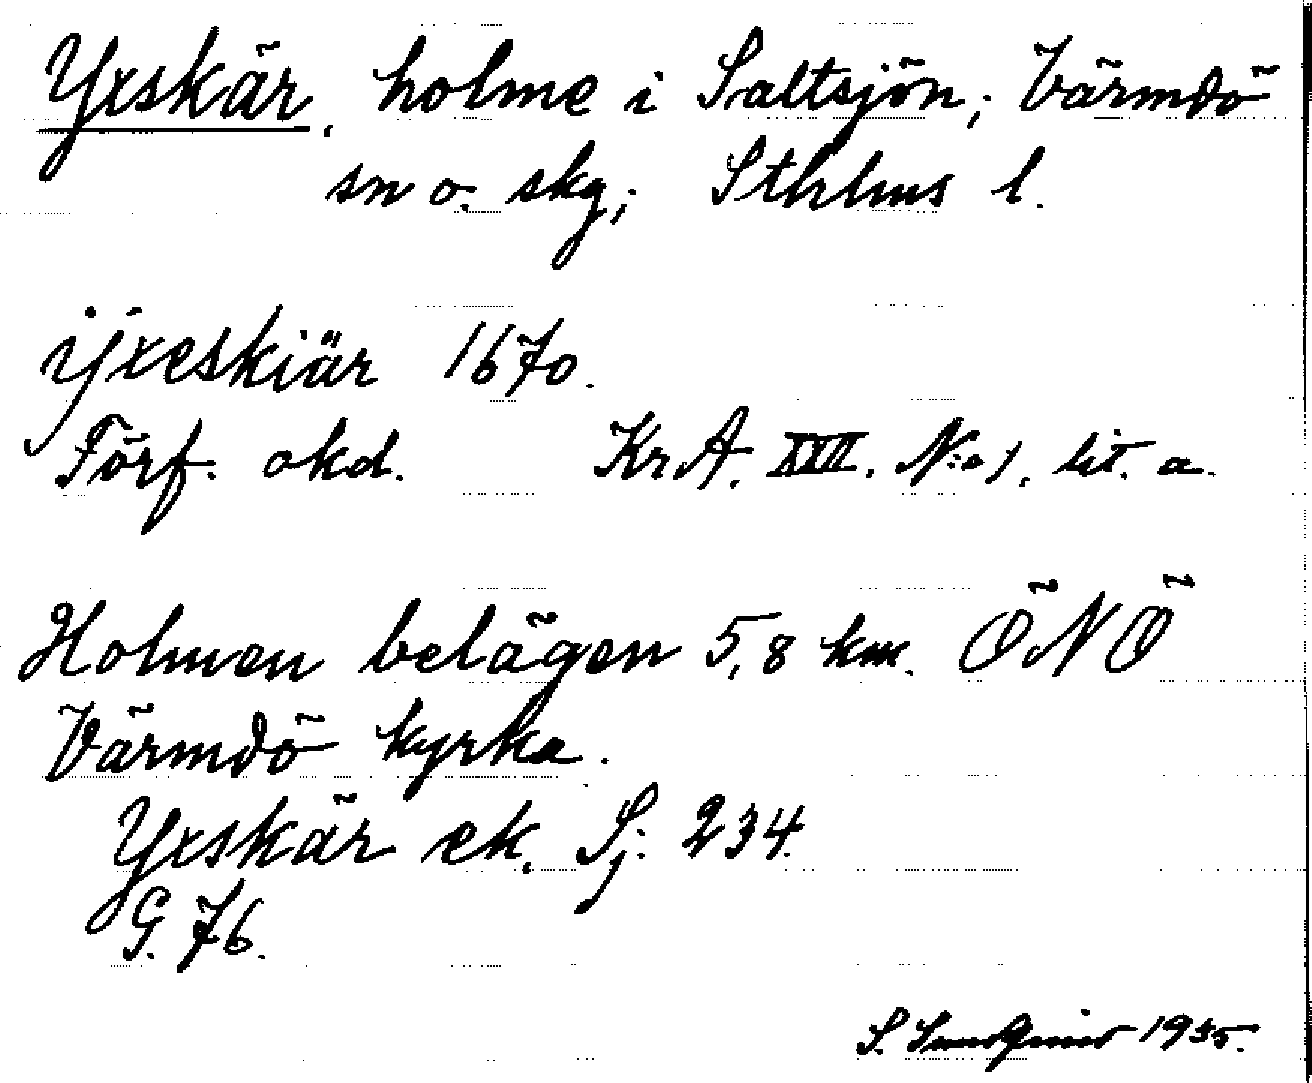 Yxskär, holme i Saltsjön; Värmdö
sn o. skg; Sthlms l.
ÿxeskiär 1670.
Förf. okd. KrA. XVII. N:o 1. lit. a.
Holmen belägen 5,8 km. ÖNÖ
Värmdö kyrka.
Yxskär ek. Sj. 234.
G. 76.
S. 1935.